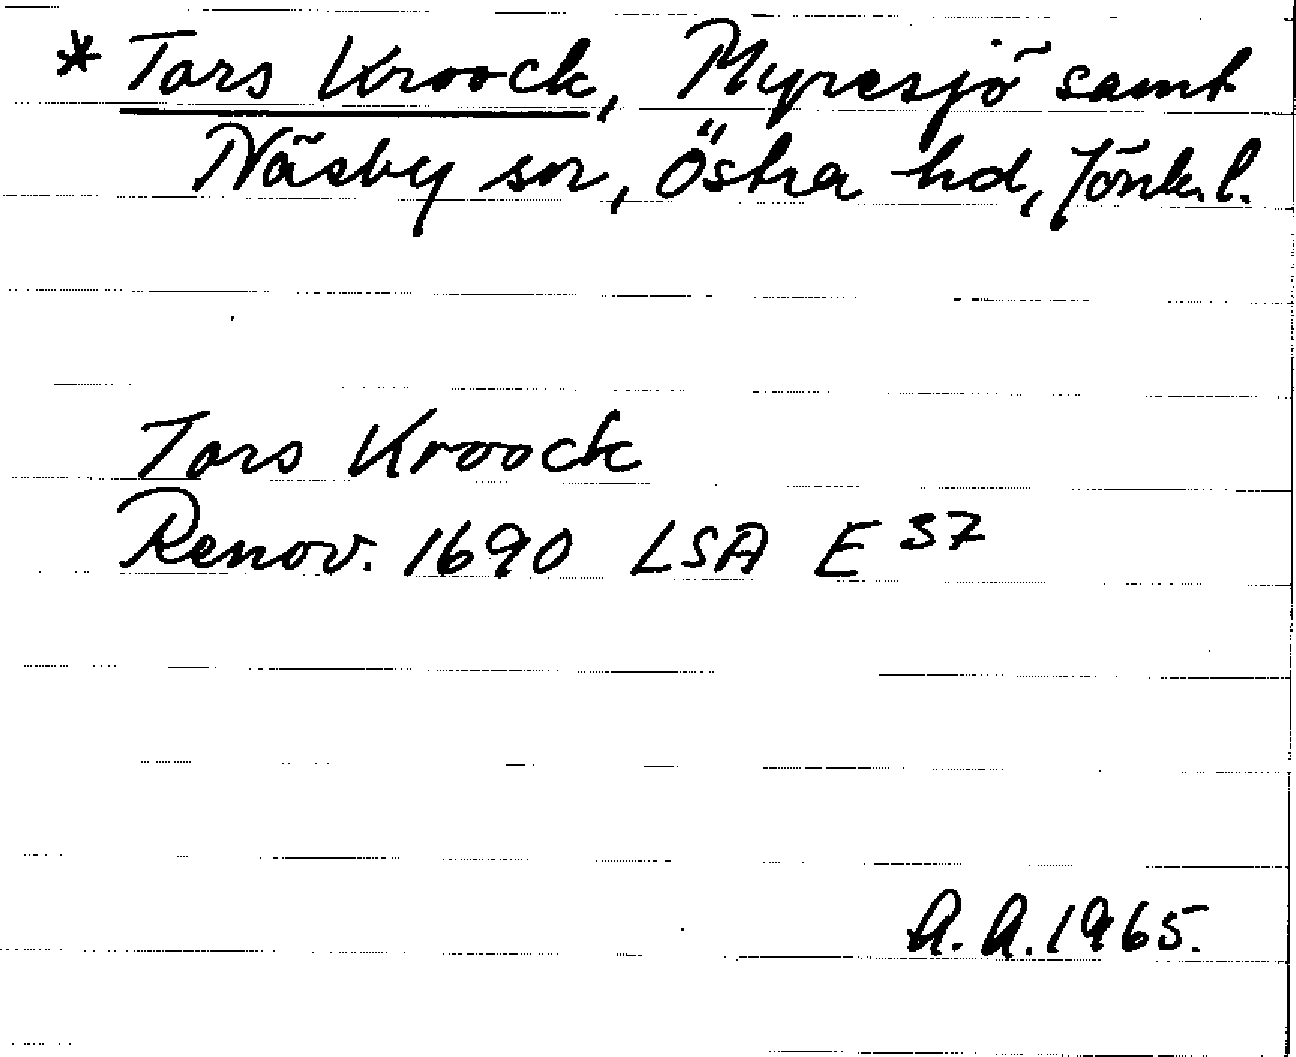 * Tars Kroock, Myresjö samt
Näsby snr, Östra hd, Jönk. l.
Tars Kroock
Renov. 1690 LSA E 37
A. A. 1965.